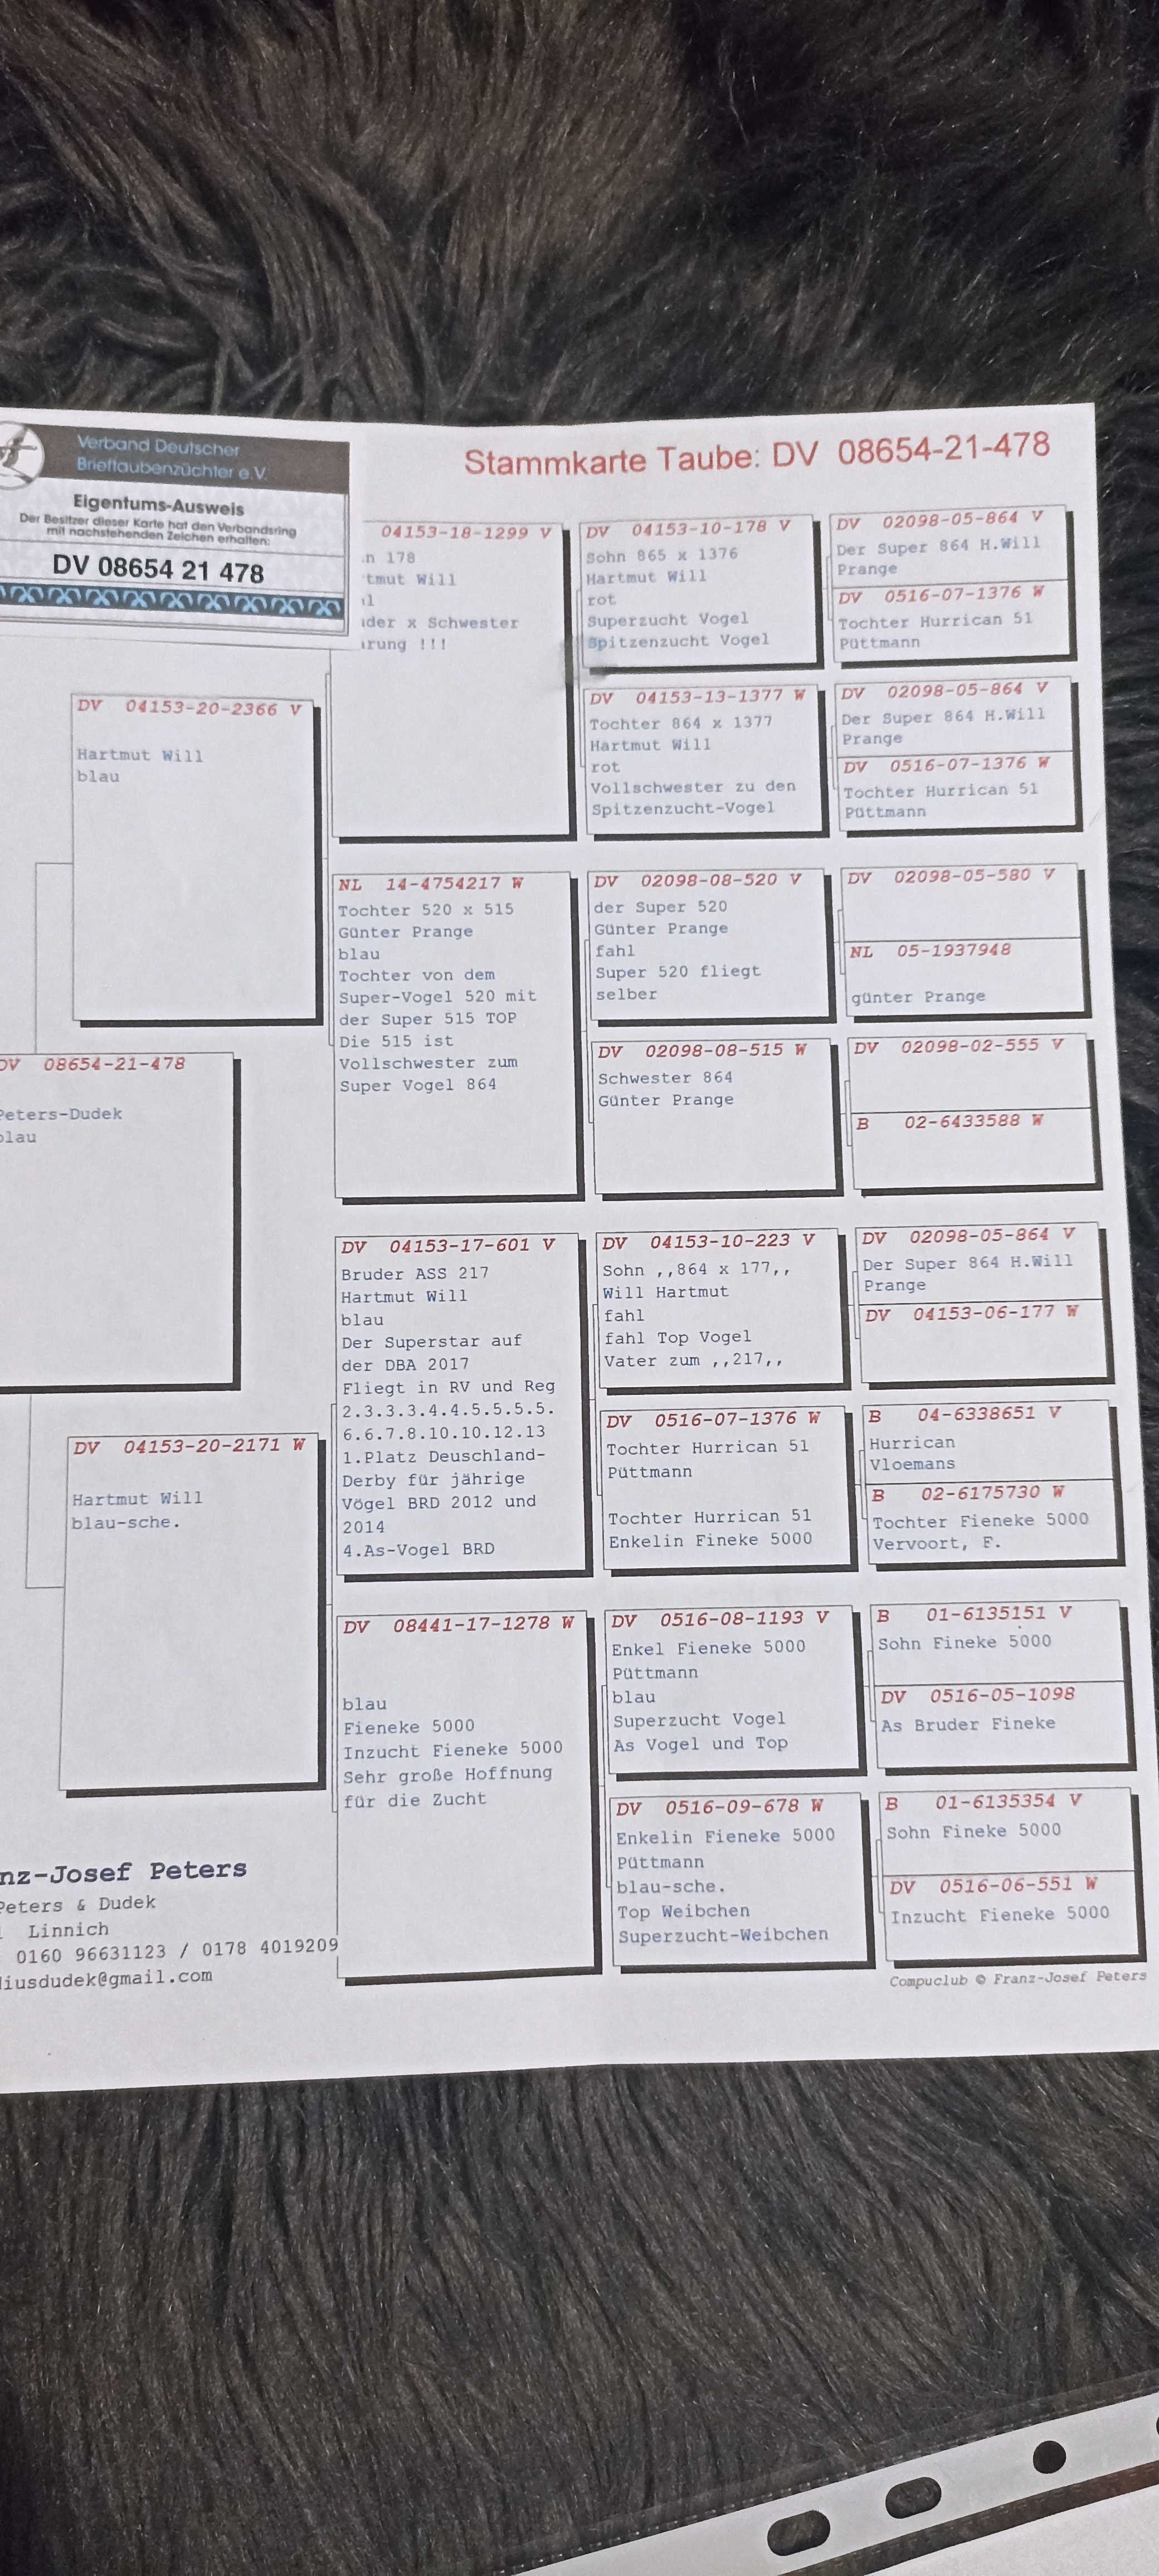 Verband Deutscher
Brieftaubenzüchter e.V.
Eigentums-Ausweis
Der Besitzer dieser Karte hat den Verbandsring
mit nachstehenden Zeichen erhalten:
DV 08654 21 478
Stammkarte Taube: DV 08654-21-478
DV 04153-20-2366 V
Hartmut Will
blau
DV 08654-21-478
Peters-Dudek
blau
DV 04153-20-2171 W
Hartmut Will
blau-sche.
04153-18-1299 V
n 178
tmut Will
l
der x Schwester
rung !!!
NL 14-4754217 W
Tochter 520 x 515
Günter Prange
blau
Tochter von dem
Super-Vogel 520 mit
der Super 515 TOP
Die 515 ist
Vollschwester zum
Super Vogel 864
DV 04153-17-601 V
Bruder ASS 217
Hartmut Will
blau
Der Superstar auf
der DBA 2017
Fliegt in RV und Reg
2.3.3.3.4.4.5.5.5.5.
6.6.7.8.10.10.12.13
1.Platz Deuschland-
Derby für jährige
Vögel BRD 2012 und
2014
4.As-Vogel BRD
DV 08441-17-1278 W
blau
Fieneke 5000
Inzucht Fieneke 5000
Sehr große Hoffnung
für die Zucht
DV 04153-10-178 V
Sohn 865 x 1376
Hartmut Will
rot
Superzucht Vogel
Spitzenzucht Vogel
DV 04153-13-1377 W
Tochter 864 x 1377
Hartmut Will
rot
Vollschwester zu den
Spitzenzucht-Vogel
DV 02098-08-520 V
der Super 520
Günter Prange
fahl
Super 520 fliegt
selber
DV 02098-08-515 W
Schwester 864
Günter Prange
DV 04153-10-223 V
Sohn ,,864 x 177,,
Will Hartmut
fahl
fahl Top Vogel
Vater zum ,,217,,
DV 0516-07-1376 W
Tochter Hurrican 51
Püttmann
Tochter Hurrican 51
Enkelin Fineke 5000
DV 0516-08-1193 V
Enkel Fieneke 5000
Püttmann
blau
Superzucht Vogel
As Vogel und Top
DV 0516-09-678 W
Enkelin Fieneke 5000
Püttmann
blau-sche.
Top Weibchen
Superzucht-Weibchen
DV 02098-05-864 V
Der Super 864 H.Will
Prange
DV 0516-07-1376 W
Tochter Hurrican 51
Püttmann
DV 02098-05-864 V
Der Super 864 H.Will
Prange
DV 0516-07-1376 W
Tochter Hurrican 51
Püttmann
DV 02098-05-580 V
NL 05-1937948
günter Prange
DV 02098-02-555 V
B 02-6433588 W
DV 02098-05-864 V
Der Super 864 H.Will
Prange
DV 04153-06-177 W
B 04-6338651 V
Hurrican
Vloemans
B 02-6175730 W
Tochter Fieneke 5000
Vervoort, F.
B 01-6135151 V
Sohn Fineke 5000
DV 0516-05-1098
As Bruder Fineke
B 01-6135354 V
Sohn Fineke 5000
DV 0516-06-551 W
Inzucht Fieneke 5000
nz-Josef Peters
Peters & Dudek
Linnich
0160 96631123 / 0178 4019209
iusdudek@gmail.com
Compuclub © Franz-Josef Peters